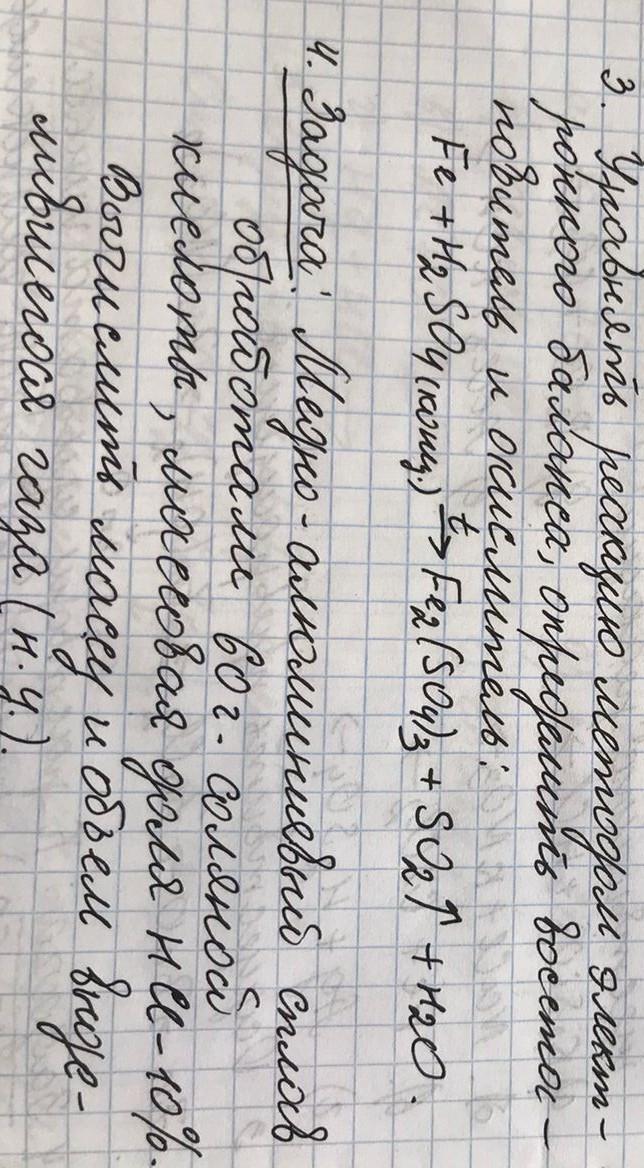 3. Уравнять реакцию методом элект-
ронного баланса, определить восста-
новитель и окислитель:
Fe + H₂SO₄(конц.) t→ Fe₂(SO₄)₃ + SO₂↑ + H₂O.
4. Задача: Медно-алюминиевый сплав
обработали 60 г. соляной
кислоты, массовая доля HCl - 10%.
Вычислить массу и объем выде-
лившегося газа (н.у.).